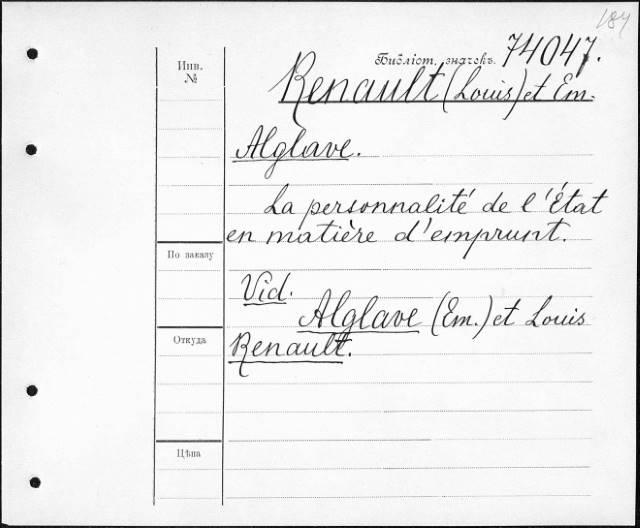 184
Инв.
№
Библіот. значекъ. 74047.
Renault (Louis) et Em.
Alglave.
La personnalité de l'État
en matière d'emprunt.
По заказу
Vid.
Alglave (Em.) et Louis
Откуда
Renault.
Цѣна